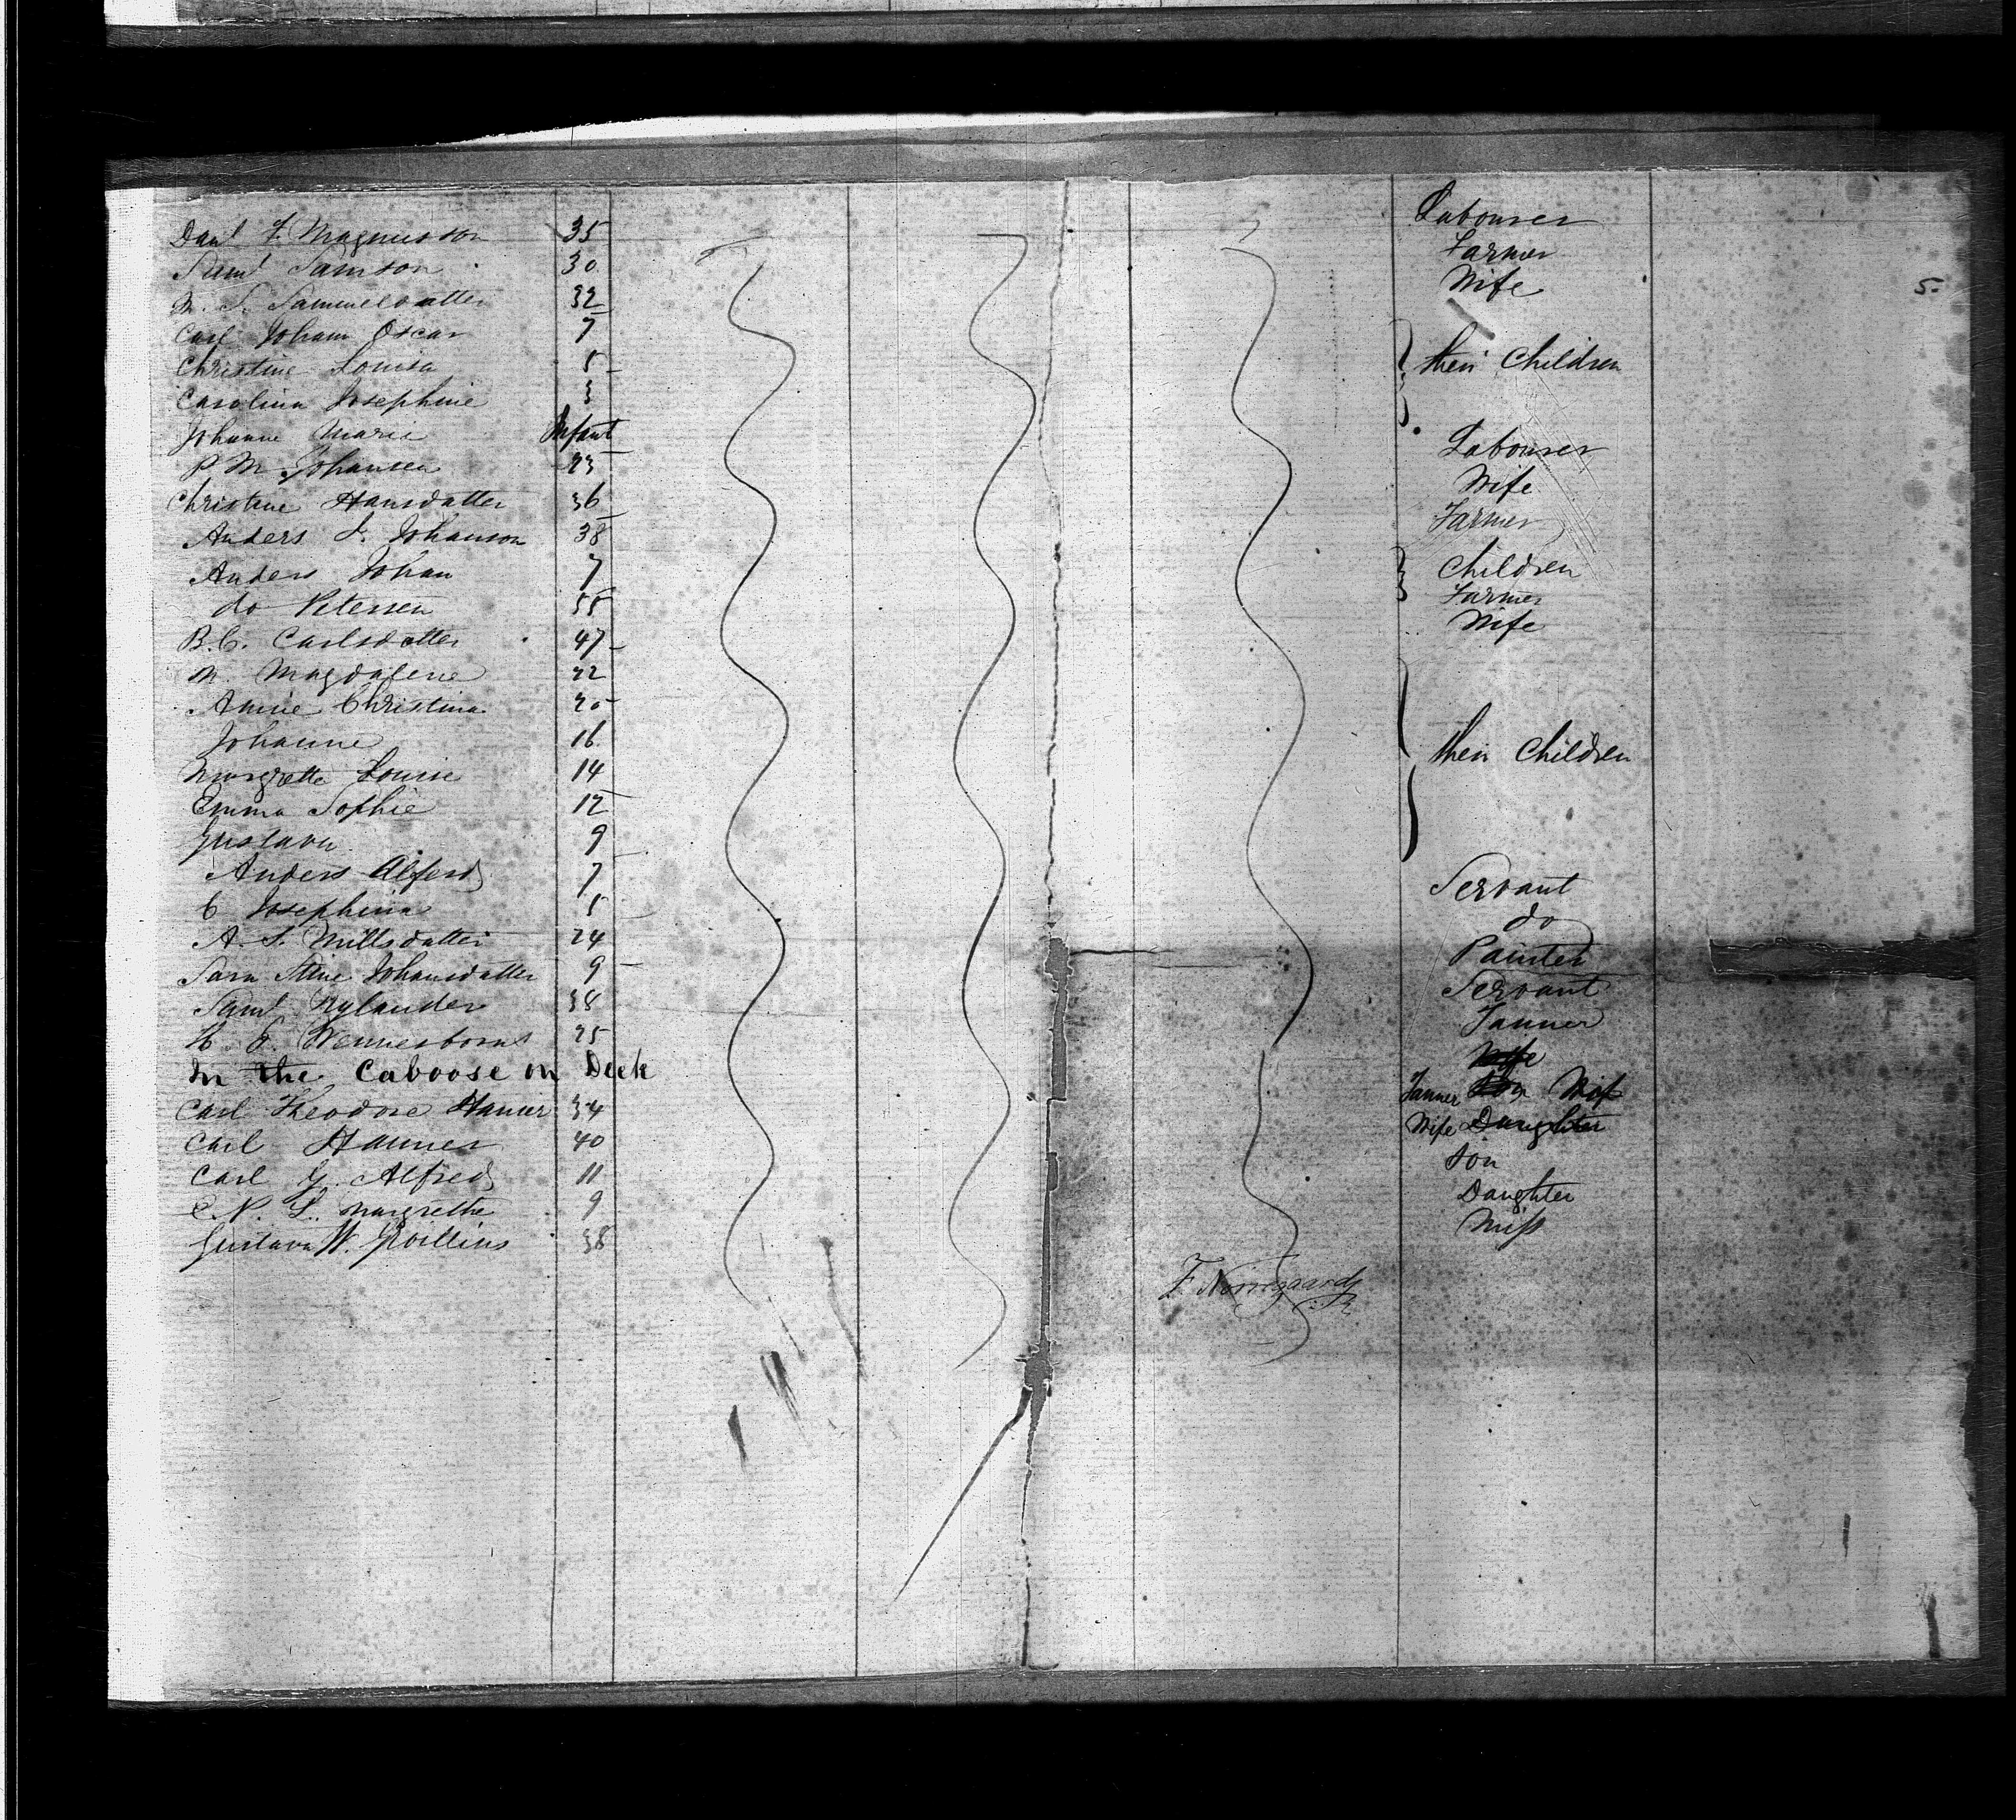 Danl F. Magnusson 35 Labourer
Saml Samson 30 Farmer
M. S. Samuelsdatter 32 Wife
Carl Johann Oscar 7
Christine Louisa 5 their Children
Carolina Josephine 3
Johanne Marie Infant
P M Johansen 23 Labourer
Christine Hansdatter 36 Wife
Anders J. Johanson 38 Farmer
Anders Johan 7 Children
do Petersen 55 Farmer
B. C. Carlsdatter 47 Wife
M. Magdalene 22
Annie Christina 20
Johanne 16 their Children
Margrette Louise 14
Emma Sophie 12
Gustava 9
Anders Alfered 7
C Josephina 5
A. S. Millsdatter 24 Servant
Sara Stine Johansdatter 9 do
Saml Nylander 38 Painter
H. E. Wennesborns 25 Servant
Tanner
Wife
In the Caboose on Deck
Carl Theodore Hamer 34 Tanner Son Wife
Carl Hanner 40 Wife Daughter
Carl G. Alfred 11 Son
C. P. L. Margrethe 9 Daughter
Gustava W. 38 Miss
F Norregaard
5.